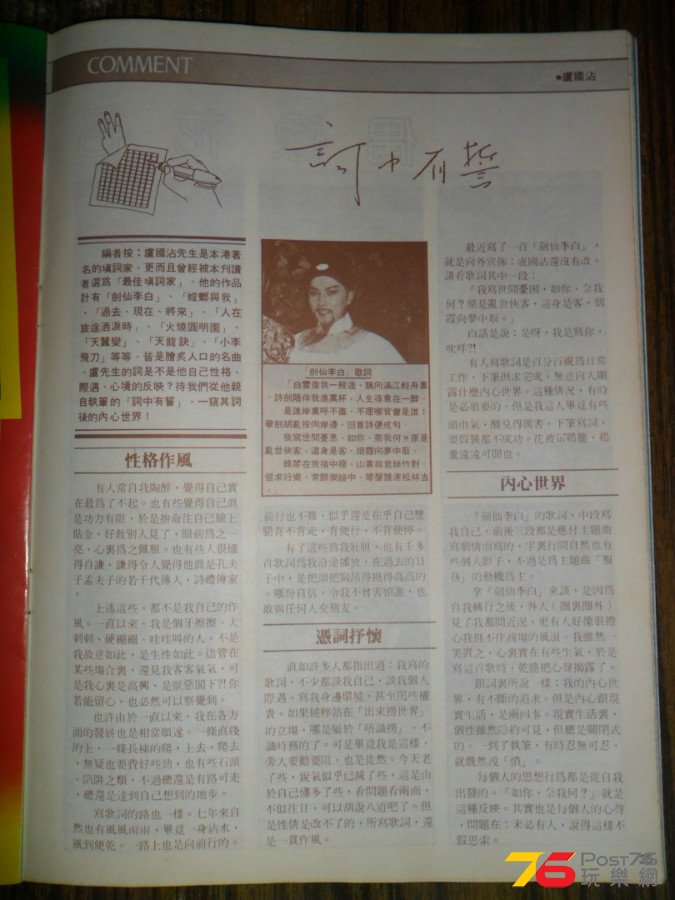 COMMENT
•盧國沾
詞中有誓
編者按:盧國沾先生是本港著
名的填詞家,更而且曾經被本刋讀
者選為「最佳填詞家」。他的作品
計有「劍仙李白」、「螳螂與我」
、「過去、現在、將來」、「人在
旅途洒淚時」、「火燒圓明園」、
「天蠶變」、「天龍訣」、「小李
飛刀」等等,皆是膾炙人口的名曲
。盧先生的詞是不是他自己性格、
際遇、心境的反映?待我們從他親
自執筆的「詞中有誓」,一窺其詞
後的內心世界!
性格作風
有人常自我陶醉,覺得自己實
在最為了不起。也有些覺得自己眞
是功力有限,於是拚命往自己臉上
貼金,好敎別人見了、眼前為之一
亮,心裏為之佩服。也有些人很懂
得自謙,謙得令人覺得他眞是孔夫
子孟夫子的若干代傳人,詩禮傳家
。
上述這些,都不是我自己的作
風。一直以來,我是個牙擦擦,大
刺刺,硬綳綳,哇哇叫的人。不是
我故意如此,是生性如此。儘管在
某些塲合裏,還見我客客氣氣,可
是我心裏是高興,是厭惡閣下?!你
若能留心,也必然可以察覺到。
也許由於一直以來,我在各方
面的發展也是相當順遂。一條直綫
的上,一條長梯的爬,上去,爬去
,無疑也要費好些勁,也有些石頭
、陷阱之類,不過總還是有路可走
,總還是達到自己想到的地步。
寫歌詞的路也一樣。七年來自
然也有風風雨雨,畢竟一身沾水,
風到便乾。一路上也是向前行的。
「劍仙李白」歌詞
「白雲像我一般逸,飄向滿江輕舟裏
,詩劍陪伴我進萬杯,人生得意在一醉。
是誰岸裏呼不進,不理哪官會是誰!
畢劍胡亂投向岸邊,回首詩便成句。
我寫世間憂思,如你,奈我何?原是
亂世俠客,這身是客,烟霞向夢中取。
綠琴在我指中撥,山裏與君林竹對,
但求行樂,常醉樂韻中,琴聲飄進松林去
前行也不難,似乎還是在乎自己雙
腿肯不肯走,肯便行,不肯便停。
有了這些為我壯膽,也有千多
首歌詞為我沿途播放,在過去的日
子中,是把頭把胸昂得挺得高高的
。哪份自信,令我不曾害怕誰,也
敢與任何人交朋友。
憑詞抒懷
直如許多人都指出過:我寫的
歌詞,不少都談我自己,談我個人
際遇,寫我身邊環境,甚至罵些權
貴。如果純粹站在「出來撈世界」
的立塲,哪是屬於「唔識撈」,不
識時務的了。可是畢竟我是這樣,
旁人要勸要阻,也是徒然。今天老
了些,銳氣似乎已減了些,這是由
於自己懂多了些,看問題看兩面,
不似往日,可以胡說八道吧了。但
是性情是改不了的,所寫歌詞,還
是一貫作風。
最近寫了一首「劍仙李白」,
就是向外宣佈:盧國沾還沒有改。
請看歌詞其中一段:
「我寫世間憂困,如你,奈我
何?原是亂世俠客,這身是客,烟
霞向夢中取。」
白話是說:是呀,我是寫你,
吹咩?!
有人寫歌詞是百分百視為日常
工作,下筆但求完成,無意向人顯
露什麼內心世界。這種情況,有時
是必須要的。但是我這人畢竟有些
頭巾氣,酸臭得厲害,下筆寫詞,
要假裝都不成功。花被當鷄籠,鷄
糞遠遠可聞也。
內心世界
「劍仙李白」的歌詞,中段寫
我自己,前後三段都是應付主題曲
寫劇情而寫的,字裏行間自然也有
些個人影子,不過是為主題曲「服
務」的動機為主。
拿「劍仙李白」來談,是因為
自我轉行之後,外人(圈裏圈外)
見了我都問近況,更有人好像很擔
心我捱不住商塲的風浪。我雖然一
笑置之,心裏實在有些生氣,於是
寫這首歌時,乾脆把心聲揭露了。
跟詞裏所說一樣:我的內心世
界,有不斷的追求。但是內心跟現
實生活,是兩回事。現實生活裏,
個性雖然隱約可見,但總是關閉式
的。一到了執筆,有時忍無可忍,
就慨然洩「憤」。
每個人的思想行為都是從自我
出發的。「如你,奈我何?」就是
這種反映。其實也是每個人的心聲
,問題在:未必有人,說得這樣不
假思索。
76 Post76
玩樂網